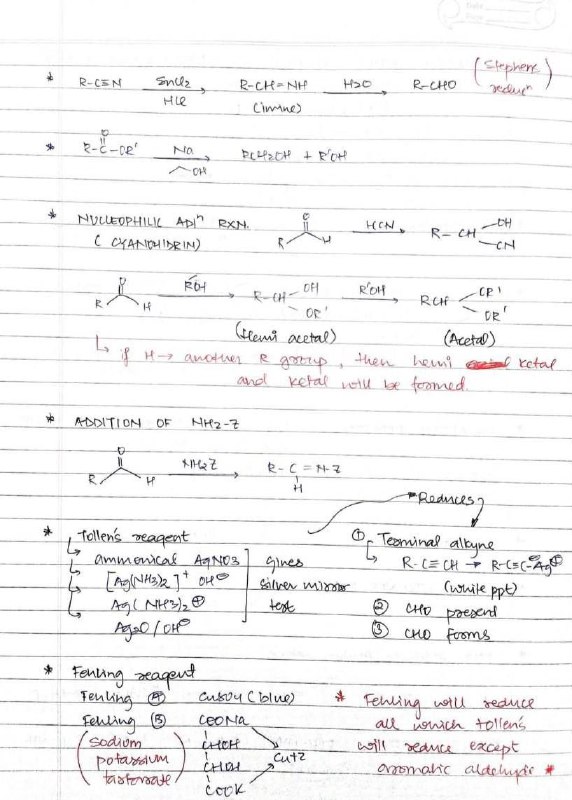 * R-C≡N SnCl2 / HCl → R-CH=NH (imine) H2O → R-CHO (Stephens reducn)
* R-C(=O)-OR' Na / OH → RCH2OH + R'OH
* NUCLEOPHILIC ADIn RXN. R H O HCN → R-CH -OH -CN
( CYANOHIDRIN)
R H O R'OH → R-CH OH OR' R'OH → RCH OR' OR'
(Hemi acetal) (Acetal)
↳ if H → another R group, then hemi ketal
and ketal will be formed.
* ADDITION OF NH2-Z
R H O NH2Z → R-C=N-Z
H
Reduces
* Tollen's reagent
↳ ammonical AgNO3
↳ [Ag(NH3)2]+ OH⊖
↳ Ag(NH3)2⊕
↳ Ag2O / OH⊖
gives
silver mirror
test
① Terminal alkyne
↳ R-C≡CH → R-C≡C-⊖Ag⊕
(white ppt)
② CHO present
③ CHO forms
* Fehling reagent
Fehling Ⓐ CuSO4 (blue)
Fehling Ⓑ COONa
(sodium CHOH
potassium CHOH Cu+2
tartarate) COOK
* Fehling will reduce
all which tollen's
will reduce except
aromatic aldehyde *